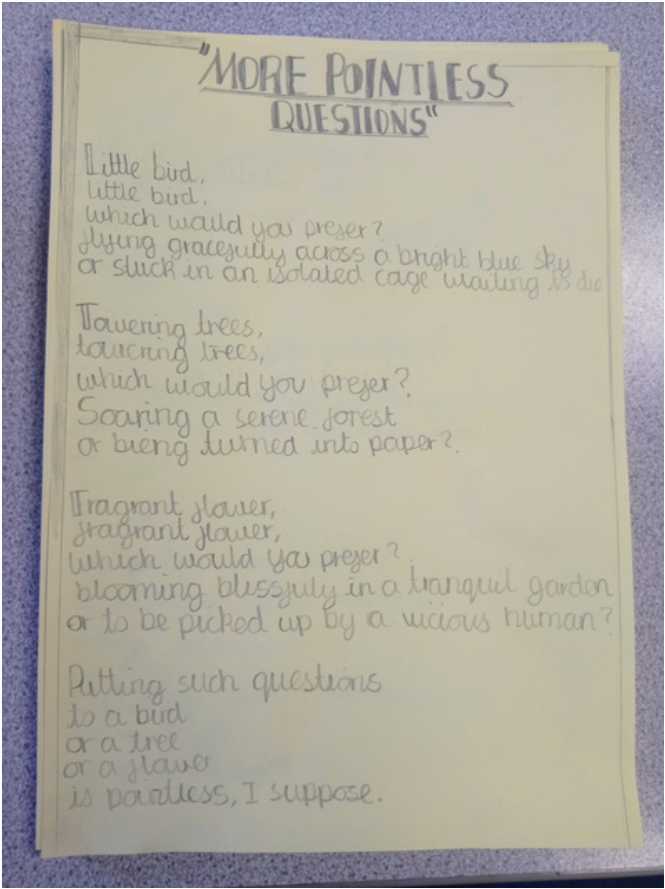 "MORE POINTLESS
QUESTIONS"
Little bird,
little bird,
which would you prefer?
flying gracefully across a bright blue sky
or stuck in an isolated cage waiting to die
Towering trees,
towering trees,
which would you prefer?
Soaring a serene forest
or bieng turned into paper?
Fragrant flower,
fragrant flower,
which would you prefer?
blooming blissfuly in a tranquil garden
or to be picked up by a vicious human?
Putting such questions
to a bird
or a tree
or a flower
is pointless, I suppose.